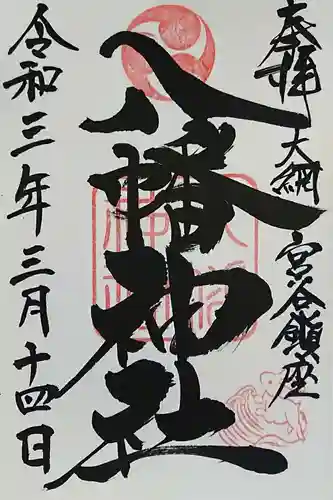 奉拝
大網
宮谷鎮座
八幡神社
令和三年三月十四日